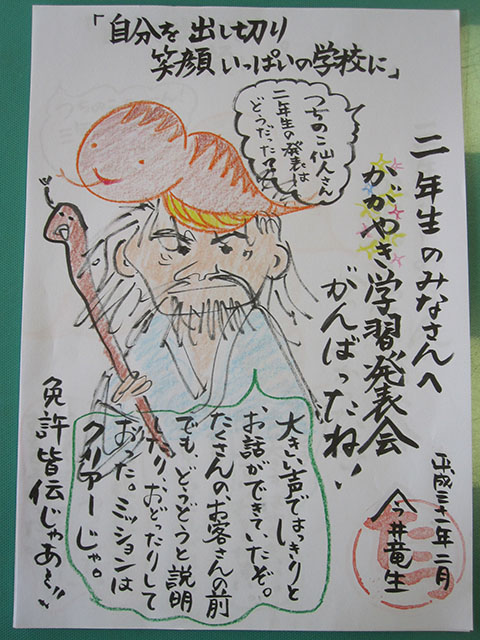 「自分を出し切り
笑顔いっぱいの学校に」
二年生のみなさんへ
かがやき学習発表会
がんばったね!
平成三十一年二月
今井竜生
つちのこ仙人さん
二年生の発表は
どうだった?
大きい声ではっきりと
お話ができていたぞ。
たくさんの、お客さんの前
でも、どうどうと説明
したり、おどったりして
おった。ミッションは
クリアーじゃ。
免許皆伝じゃあ〜!!